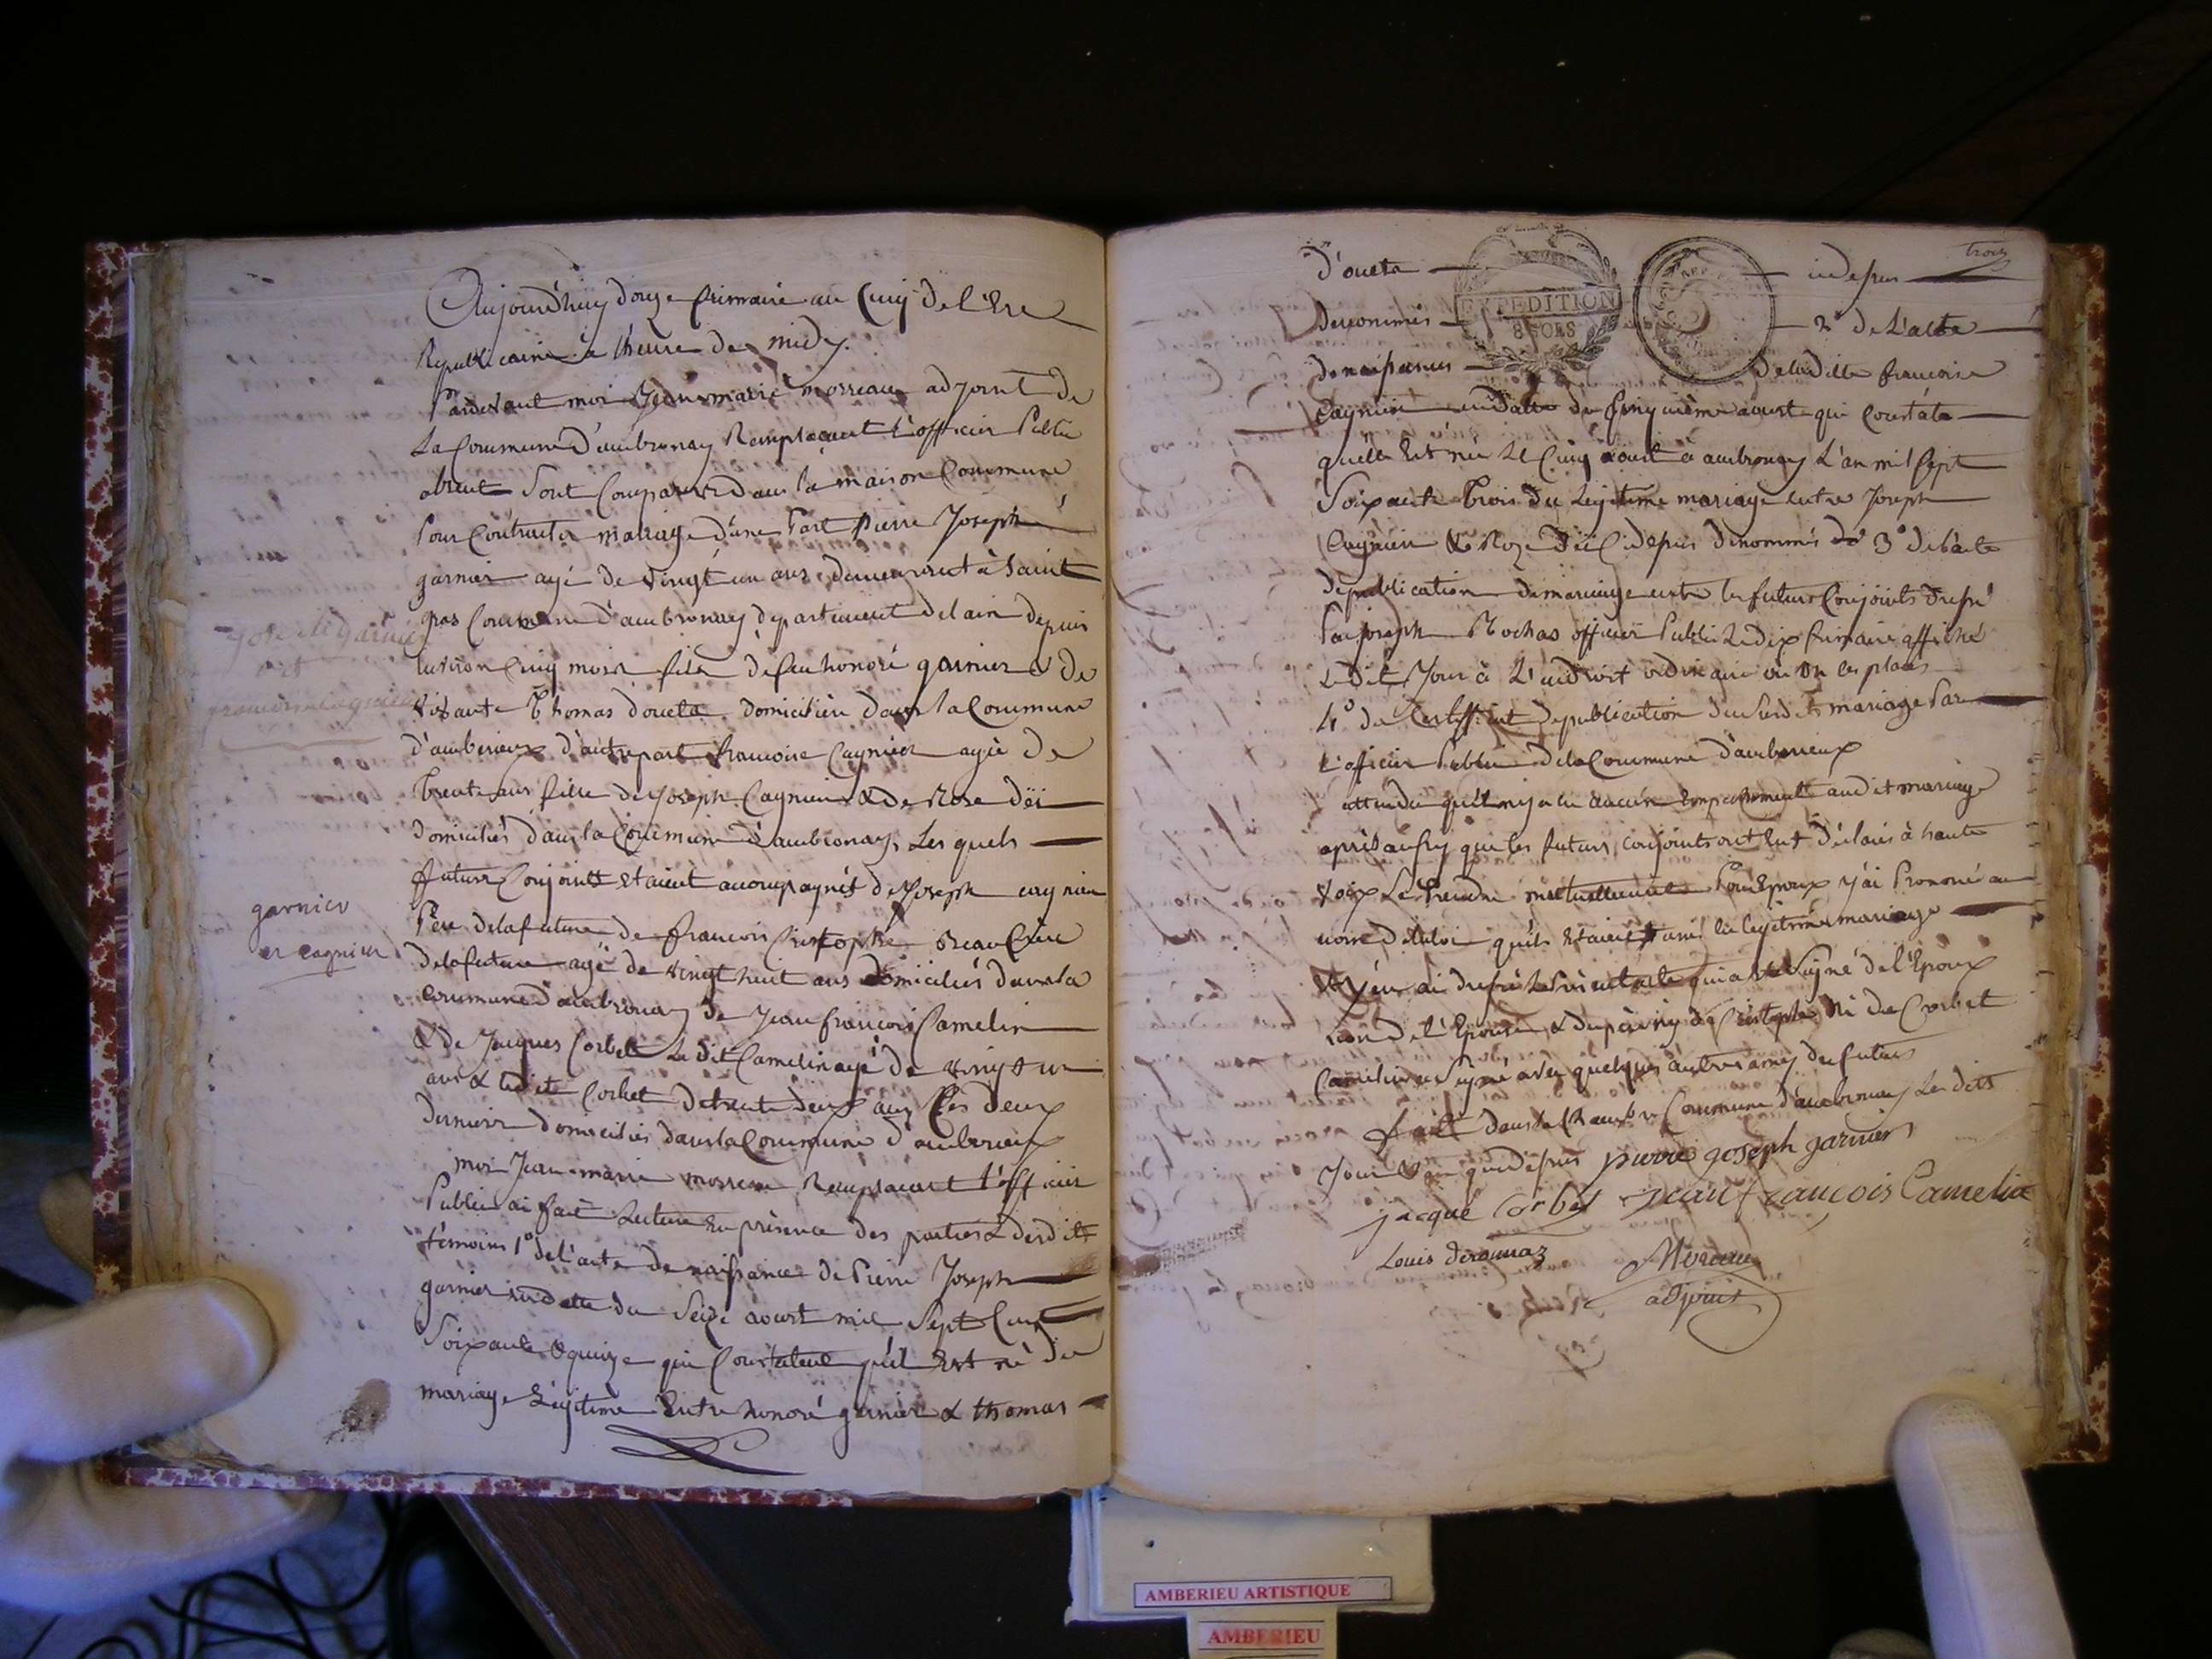 Aujourd'huy douze frimaire an Cinq de l'Ere
Republicaine à l'heure de midy.
Pardevant moi Jean marie morreau adjoint de
La Commune d'ambronay Remplaçant L'officier Public
absent Sont Comparus dans la maison Commune
Pour Contracter mariage d'une Part Pierre Joseph
garnier agé de vingt un ans demeurant à Saint
gras Commune d'ambronay departement de lain depuis
environ Cinq mois fils de feu honoré garnier & de
vivante Thomas doueta domiciliée dans la Commune
d'amberieux d'autre part francoise Cagnier agée de
trente ans fille de Joseph Cagnier & de Rose Déi
domiciliés dans la Commune d'ambronay, Les quels
futurs Conjoints Etaient acompagnés de Joseph cagnier
Père de la future de francois Cristophe Beau frère
de la future agé de vingt huit ans domiciliés dans la
commune d'ambronay de Jean francois Camelin
& de Jacques Corbet Le dit Camelin agé de vingt un
ans & le dit Corbet de trente deux ans Ces deux
derniers domiciliés dans la Commune d'amberieux
moi Jean marie morreau Remplacant l'officier
Public ai fait Lecture En présence des parties & desdits
témoins 1° de l'acte de naissance de Pierre Joseph
garnier en datte du Seize aoust mil Sept Cent
Soixante & quinze qui Constate qu'il Est né du
mariage Légitime Entre honoré garnier & thomas
joseph garnier
et
francoise cagnier
garnier
et cagnier
trois
d'oueta cidessus
denommés 2° de L'acte
de naissance de ladite francoise
EXPEDITION
8 SOLS
Cagnier en datte du Cinquième aoust qui Constate
quelle Est née Le Cinq aoust à ambronay L'an mil Sept
Soixante trois du Legitime mariage entre Joseph
Cagnier & Roze Déi Cidessus denommés 3° de l'acte
de publication de mariage entre les futurs Conjoints dressé
Par Joseph Rochas officier Public Le dix frimaire affiché
Ledit Jour à L'endroit ordinaire
4° du Certifficat de publication du Susdit mariage Par
L'officier Public de la Commune d'amberieux
attendu qu'il n'y a eu aucun Empechement audit mariage
après aussy que les futurs conjoints ont Eut déclaré à haute
voix Se Prendre mutuellement Pour Epoux j'ai Prononcé au
nom de la loi qu'ils Etaient unis En legitime mariage
& j'en ai dressé Le présent acte qui a été Signé de l'Epoux
non de l'Epouse & du père ny de Cristophe Ni de Corbet
Camelin a Signé avec quelques autres amis du futur
fait dans la Chambre Commune d'ambronay Les dits
Jour & an que dessus pierre joseph garnier
jacque Corbet jean francois Camelin
Louis derounaz Moreau
adjoint
AMBERIEU ARTISTIQUE
AMBERIEU